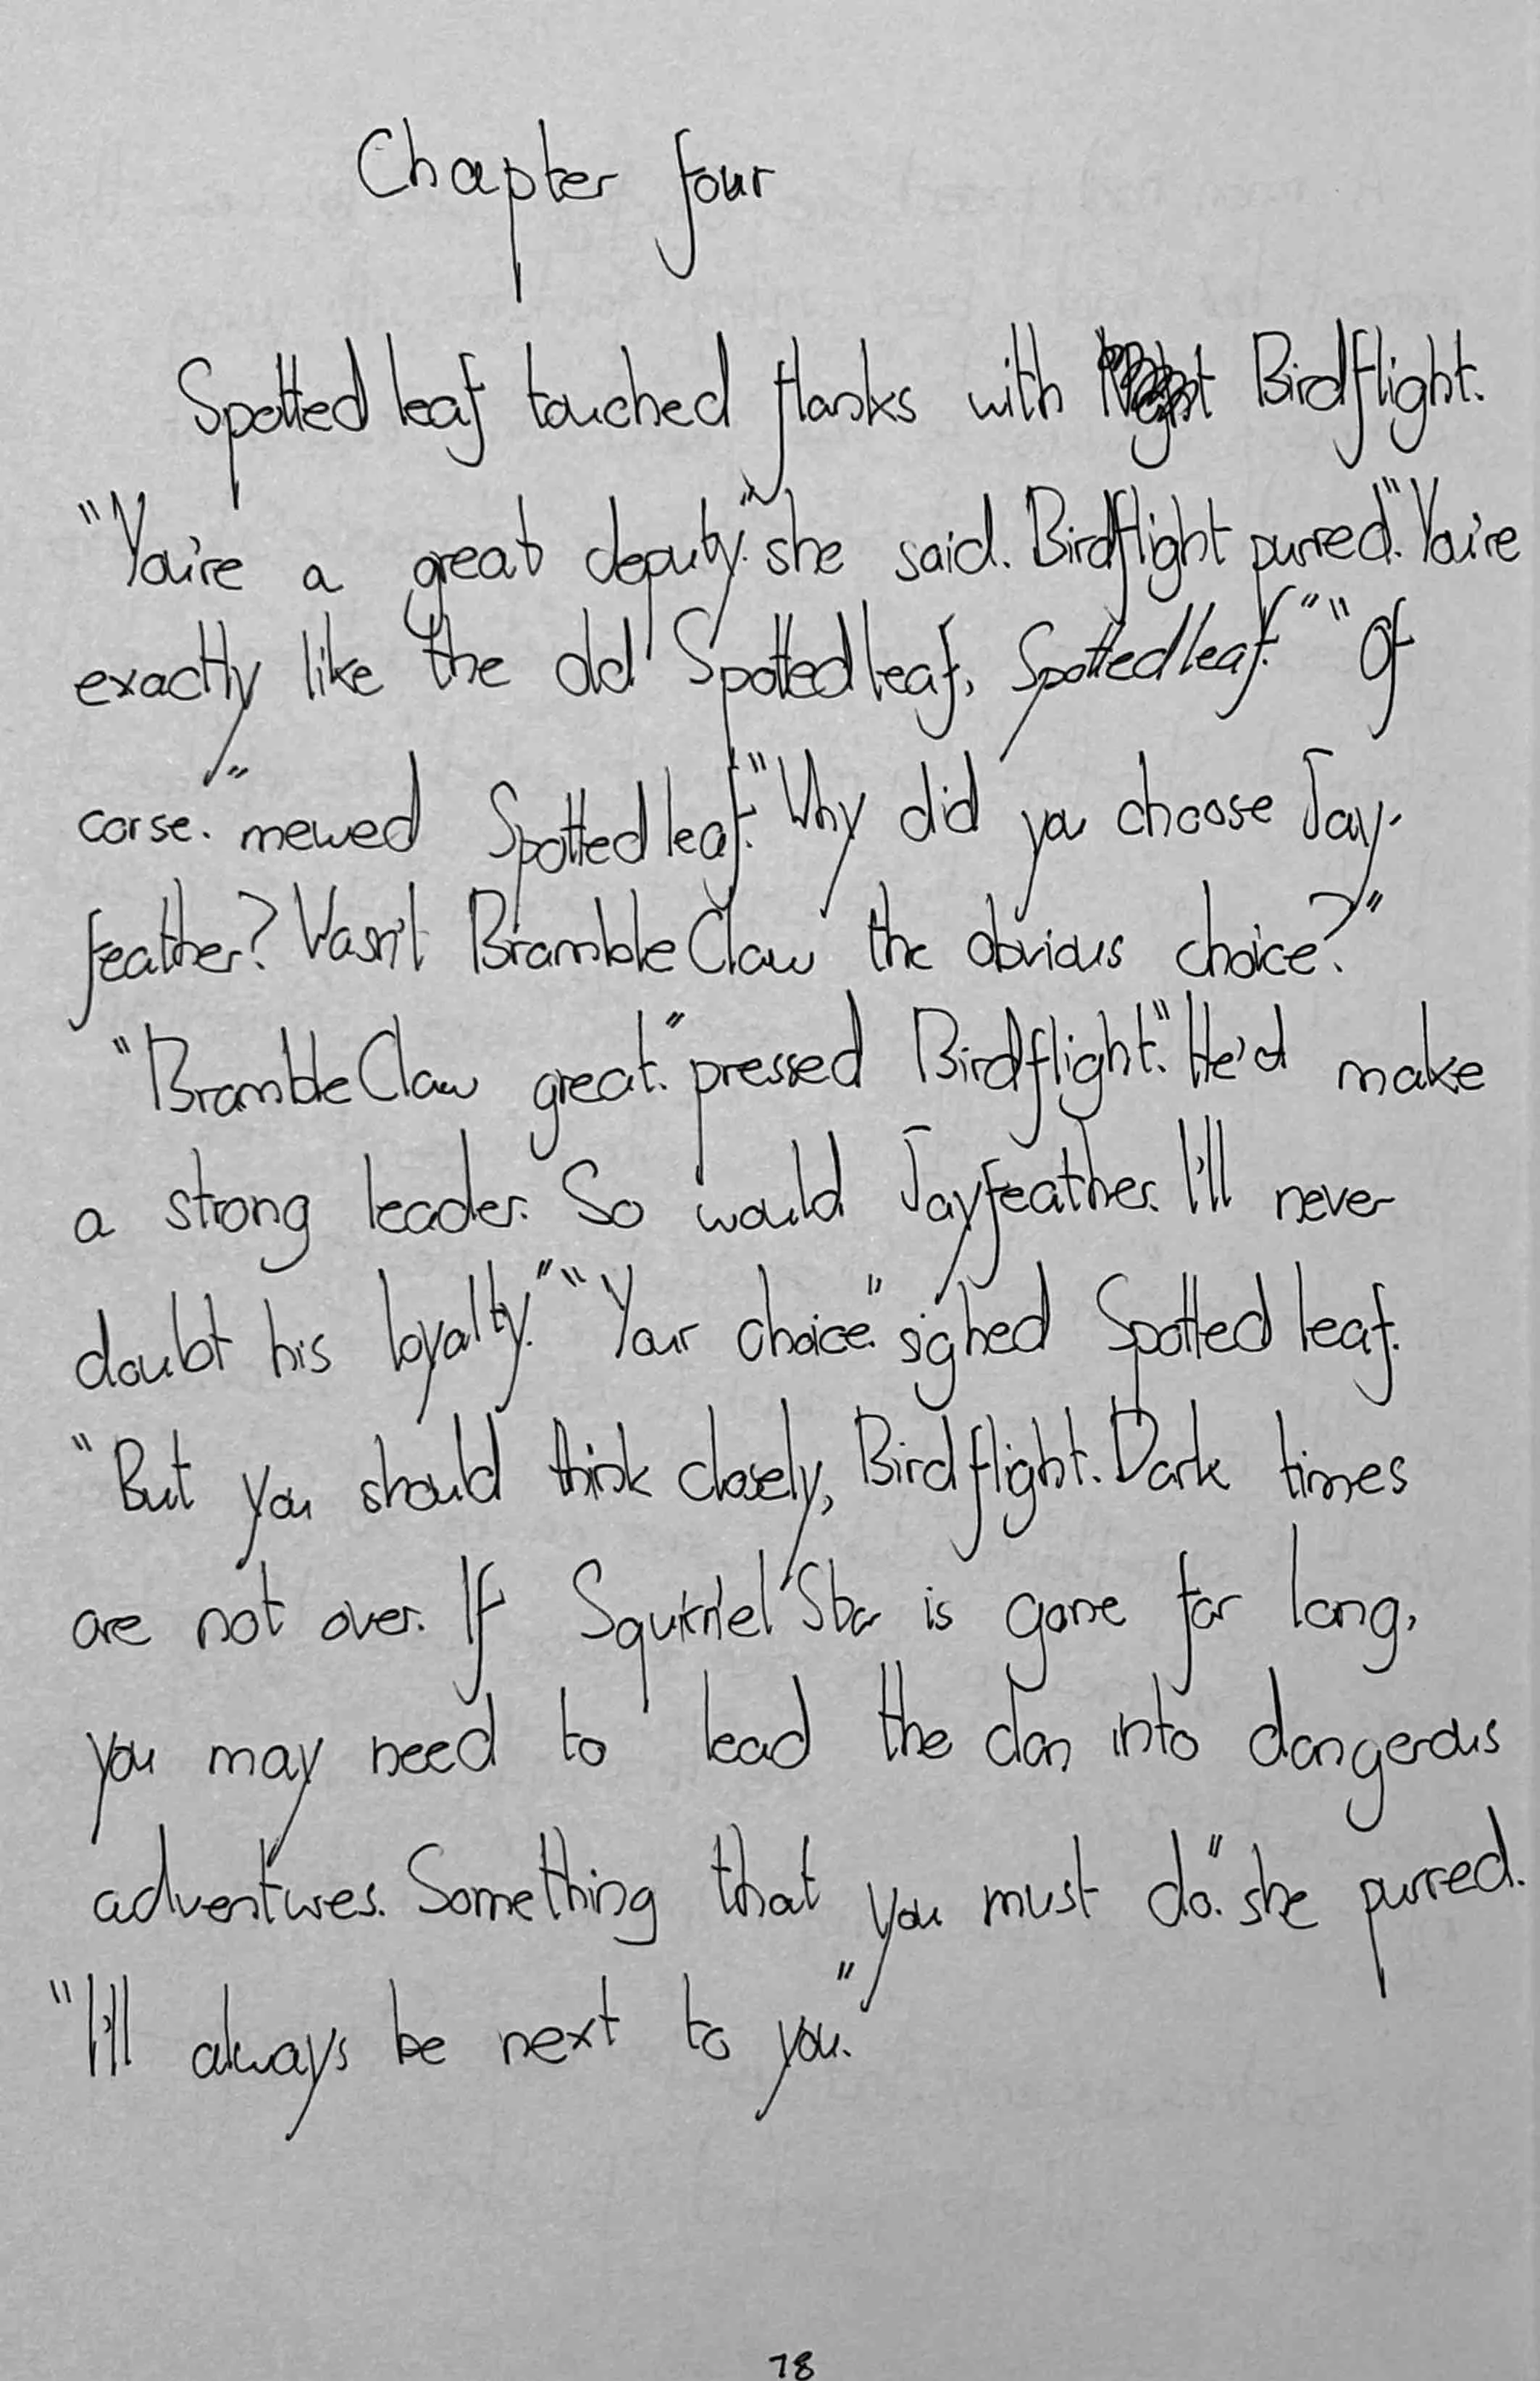 Chapter four
Spotted leaf touched flanks with Birdflight.
"You're a great deputy." she said. Birdflight purred. "You're
exactly like the old Spotted leaf, Spotted leaf." "Of
corse." mewed Spotted leaf. "Why did you choose Jay-
feather? Wasn't Bramble Claw the obvious choice?"
"Bramble Claw great." pressed Birdflight. "He'd make
a strong leader. So would Jayfeather. I'll never
doubt his loyalty." "Your choice." sighed Spotted leaf.
"But you should think closely, Birdflight. Dark times
are not over. If Squirriel Star is gone for long,
you may need to lead the clan into dangerous
adventures. Something that you must do." she purred.
"I'll always be next to you."
78